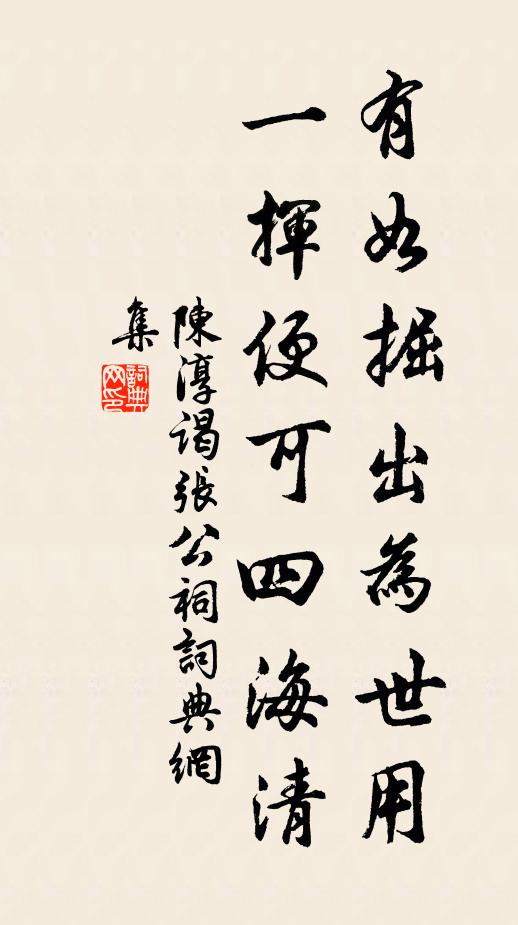 有如掘出為世用
一揮便可四海清
陳淳謁張公祠詞典網
集
詞典
网印